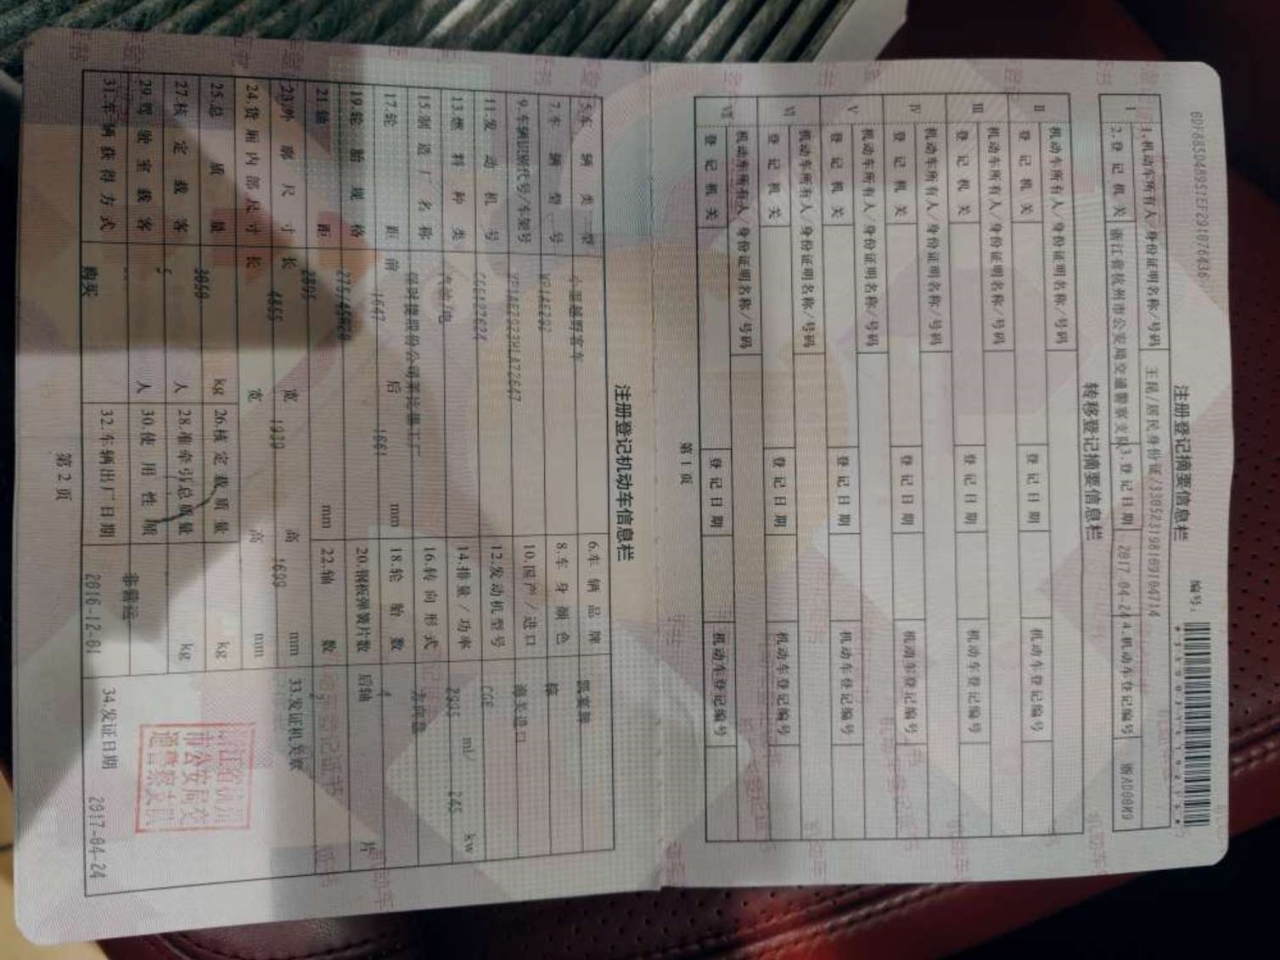 6DF8850489STEF291076436
编号:
注册登记摘要信息栏
Ⅰ 1.机动车所有人/身份证明名称/号码 王昆/居民身份证/330523198109104714
2.登记机关 浙江省杭州市公安局交通警察支队 3.登记日期 2017-04-24 4.机动车登记编号 浙AD00M9
转移登记摘要信息栏
Ⅱ 机动车所有人/身份证明名称/号码
登记机关 登记日期 机动车登记编号
Ⅲ 机动车所有人/身份证明名称/号码
登记机关 登记日期 机动车登记编号
Ⅳ 机动车所有人/身份证明名称/号码
登记机关 登记日期 机动车登记编号
Ⅴ 机动车所有人/身份证明名称/号码
登记机关 登记日期 机动车登记编号
Ⅵ 机动车所有人/身份证明名称/号码
登记机关 登记日期 机动车登记编号
Ⅶ 机动车所有人/身份证明名称/号码
登记机关 登记日期 机动车登记编号
第1页
注册登记机动车信息栏
5.车辆类型 小型越野客车 6.车辆品牌
7.车辆型号 WP1AE292 8.车身颜色 棕
9.车辆识别代号/车架号 10.国产/进口 海关进口
11.发动机号 CGE127624 12.发动机型号 CGE
13.燃料种类 汽油/电 14.排量/功率 2995 ml/ 245 kw
15.制造厂名称 保时捷股份公司莱比锡工厂 16.转向形式 方向盘
17.轮距 前 1647 后 1661 mm 18.轮胎数 4
19.轮胎规格 275/45R20 20.钢板弹簧片数 后轴 片
21.轴距 2895 mm 22.轴数 2
23.外廓尺寸 长 4855 宽 1939 高 1699 mm
24.货厢内部尺寸 长 宽 高 mm
33.发证机关章
25.总质量 3050 kg 26.核定载质量 kg
27.核定载客 5 人 28.准牵引总质量 kg
29.驾驶室载客 人 30.使用性质 非营运
31.车辆获得方式 购买 32.车辆出厂日期 2016-12-01 34.发证日期 2017-04-24
浙江省杭州
市公安局交
通警察支队
第2页